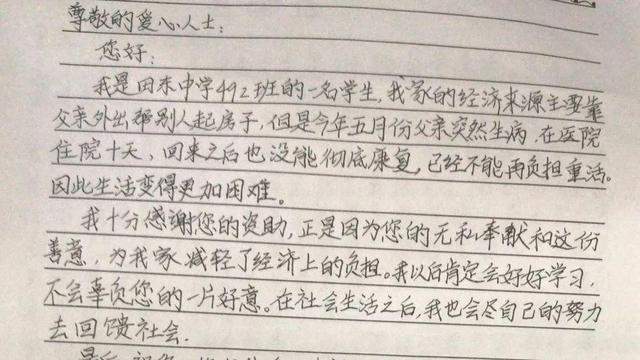 尊敬的爱心人士:
您好:
我是因未中学492班的一名学生,我家的经济来源主要靠
父亲外出帮别人起房子,但是今年五月份父亲突然生病,在医院
住院十天、回来之后也没能彻底康复,已经不能再负担重活。
因此生活变得更加困难。
我十分感谢您的资助,正是因为您的无私奉献和这份
善意,为我家减轻了经济上的负担。我以后肯定会好好学习,
不会辜负您的一片好意。在社会生活之后,我也会尽自己的努力
去回馈社会.